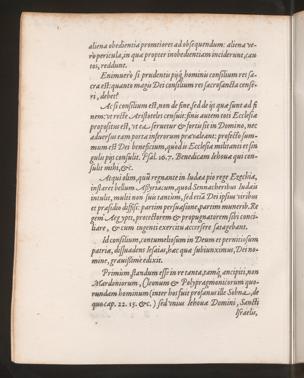 aliena obedientia promtiores ad obsequendum: aliena ve-
rò pericula, in quæ propter inobedientiam inciderunt, cau-
tos, reddunt.
Enimuerò si prudentis pijq́; hominis consilium res sa-
cra est: quanto magis Dei consilium res sacrosancta cense-
ri, debet?
Ac si consilium est, non de fine, sed de ijs quæ sunt ad fi
nem: vt rectè Aristoteles censuit: finis autem toti Ecclesiæ
propositus est, vt ea seruetur & fortis sit in Domino, nec
aduersus eam porta inferorum præualeant: profectò sum-
mum est Dei beneficium, quòd is Ecclesiæ militantis et sin
gulis pijs consulit. Psal. 16.7. Benedicam Iehoua qui con-
sulit mihi, &c.
Atqui olim, quū regnante in Iudæa pio rege Ezechia,
instaret bellum Assyriacum, quod Sennacheribus Iudæis
intulit, multi non suis tantùm, sed etiā Dei ipsius viribus
et præsidio diffisi: partim persuasione, partim munerib. Re
gem Ægypti, protectorem & propugnatorem sibi conci-
liare, & cum ingenti exercitu accersere satagebant.
Id consilium, contumeliosum in Deum et perniciosum
patriæ, dissuadens Iesaias, hæc quæ subiunximus, Dei no-
mine, grauissimè edixit.
Primùm standum esse in re tanta, tamq́; ancipiti, non
Mardoniorum, Cleonum & Polypragmonicorum quo-
rundam hominum (inter hos fuit profanus ille Sobna, de
quo cap. 22. 15. &c.) sed vnius Iehouæ Domini, Sancti
Israelis,